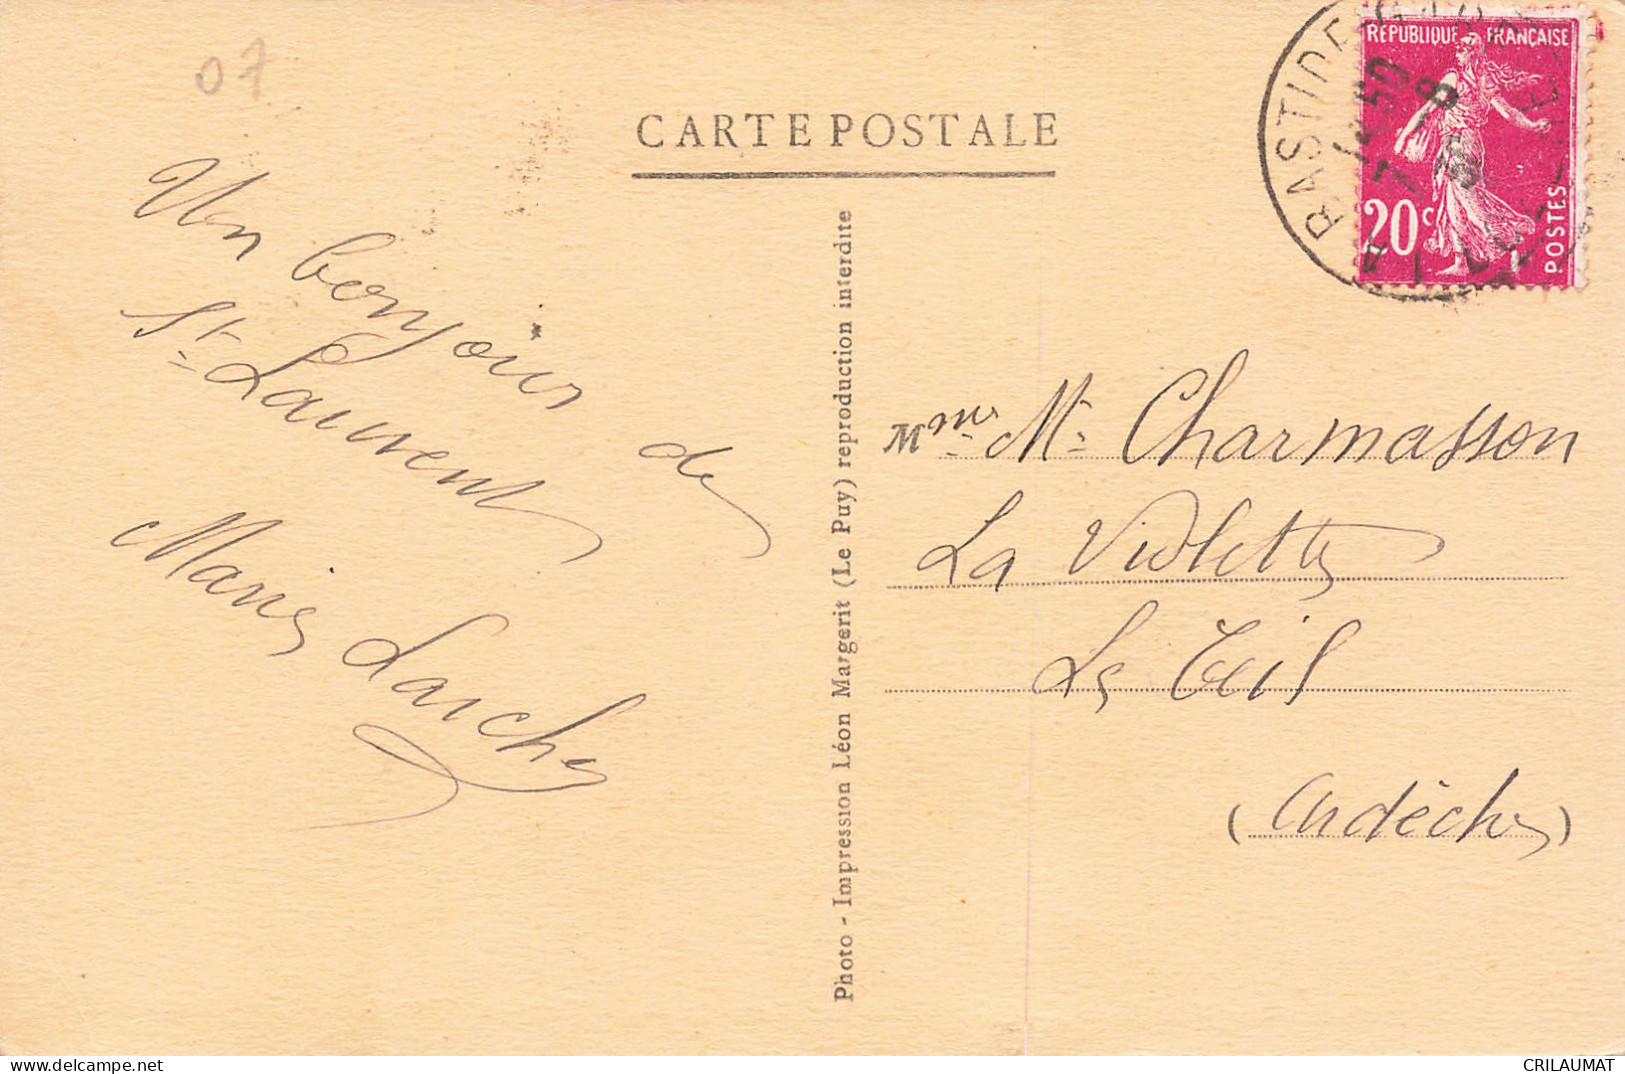 07
CARTE POSTALE
RÉPUBLIQUE FRANÇAISE
20c
POSTES
BASTIDE
7 - 8
Un bonjour de
St Laurent
Marie Larche
Photo - Impression Léon Margerit (Le Puy) reproduction interdite
Mme M. Charmasson
La Violette
Le Teil
(Ardèche)
CRILAUMAT